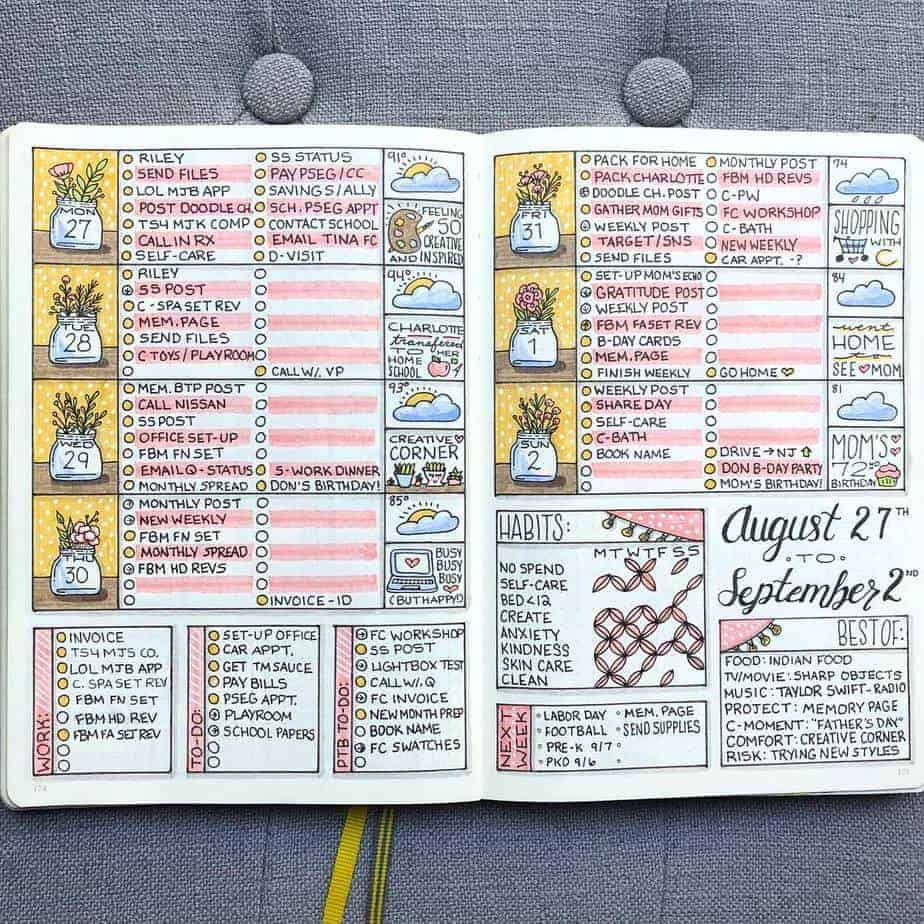 MON 27
RILEY
SEND FILES
LOL MJB APP
POST DOODLE CH.
TS4 MJK COMP
CALL IN RX
SELF-CARE
SS STATUS
PAY PSEG/CC
SAVINGS/ALLY
SCH. PSEG APPT
CONTACT SCHOOL
EMAIL TINA FC
D-VISIT
91°
FEELING
SO
CREATIVE
AND INSPIRED
TUE 28
RILEY
SS POST
C-SPA SET REV
MEM. PAGE
SEND FILES
C TOYS/PLAYROOM
CALL W/. VP
94°
CHARLOTTE
transferred
TO HER
HOME
SCHOOL
WED 29
MEM. BTP POST
CALL NISSAN
SS POST
OFFICE SET-UP
FBM FN SET
EMAIL Q-STATUS
MONTHLY SPREAD
5-WORK DINNER
DON'S BIRTHDAY!
93°
CREATIVE
CORNER
THU 30
MONTHLY POST
NEW WEEKLY
FBM FN SET
MONTHLY SPREAD
FBM HD REVS
INVOICE-ID
85°
BUSY
BUSY
BUSY
(BUT HAPPY!)
WORK:
INVOICE
TS4 MJS CO.
LOL MJB APP
C. SPA SET REV
FBM FN SET
FBM HD REV
FBM FA SET REV
TO-DO:
SET-UP OFFICE
CAR APPT.
GET TM SAUCE
PAY BILLS
PSEG APPT.
PLAYROOM
SCHOOL PAPERS
PTB TO-DO:
FC WORKSHOP
SS POST
LIGHTBOX TEST
CALL W/. Q
FC INVOICE
NEW MONTH PREP
BOOK NAME
FC SWATCHES
174
FRI 31
PACK FOR HOME
PACK CHARLOTTE
DOODLE CH. POST
GATHER MOM GIFTS
WEEKLY POST
TARGET/SNS
SEND FILES
MONTHLY POST
FBM HD REVS
C-PW
FC WORKSHOP
C-BATH
NEW WEEKLY
CAR APPT. -?
74
SHOPPING
WITH
C
SAT 1
SET-UP MOM'S ECHO
GRATITUDE POST
WEEKLY POST
FBM FA SET REV
B-DAY CARDS
MEM. PAGE
FINISH WEEKLY
GO HOME
84
went
HOME
to
SEE MOM
SUN 2
WEEKLY POST
SHARE DAY
SELF-CARE
C-BATH
BOOK NAME
DRIVE → NJ
DON B-DAY PARTY
MOM'S BIRTHDAY!
81
MOM'S
72ND
BIRTHDAY
HABITS:
M T W T F S S
NO SPEND
SELF-CARE
BED<12
CREATE
ANXIETY
KINDNESS
SKIN CARE
CLEAN
August 27TH
TO
September 2ND
NEXT WEEK
LABOR DAY
FOOTBALL
PRE-K 9/7
PKD 9/6
MEM. PAGE
SEND SUPPLIES
BEST OF:
FOOD: INDIAN FOOD
TV/MOVIE: SHARP OBJECTS
MUSIC: TAYLOR SWIFT-RADIO
PROJECT: MEMORY PAGE
C-MOMENT: "FATHER'S DAY"
COMFORT: CREATIVE CORNER
RISK: TRYING NEW STYLES